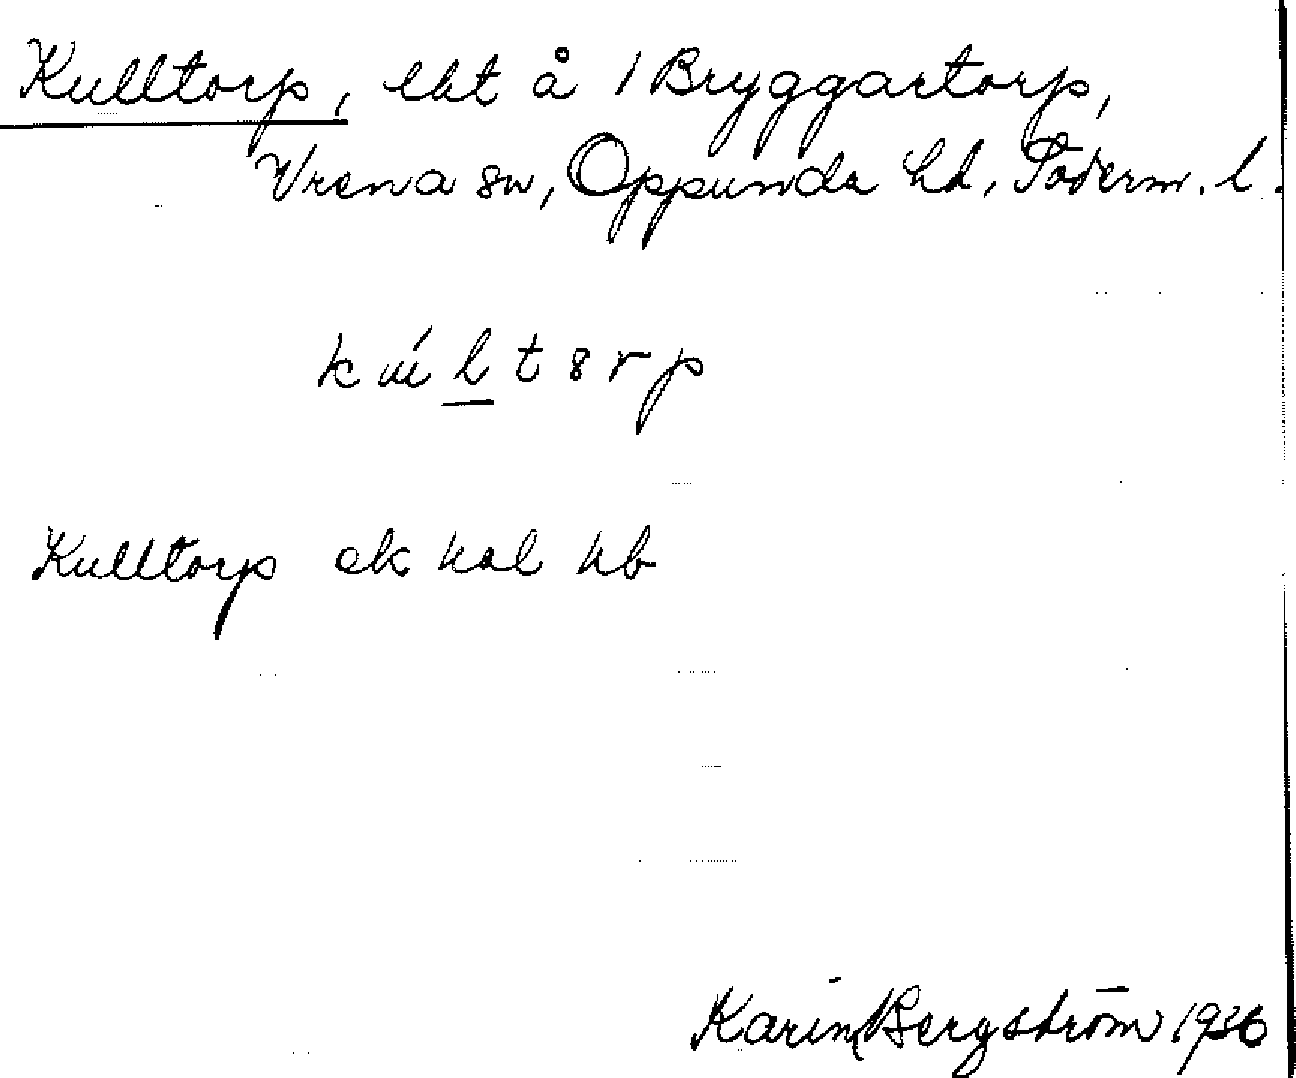 Kulltorp, lht å 1 Bryggartorp,
Vrena sn, Oppunda hd, Söderm. l.
kúltørp
Kulltorp ek kal hb
Karin Bergström 1936